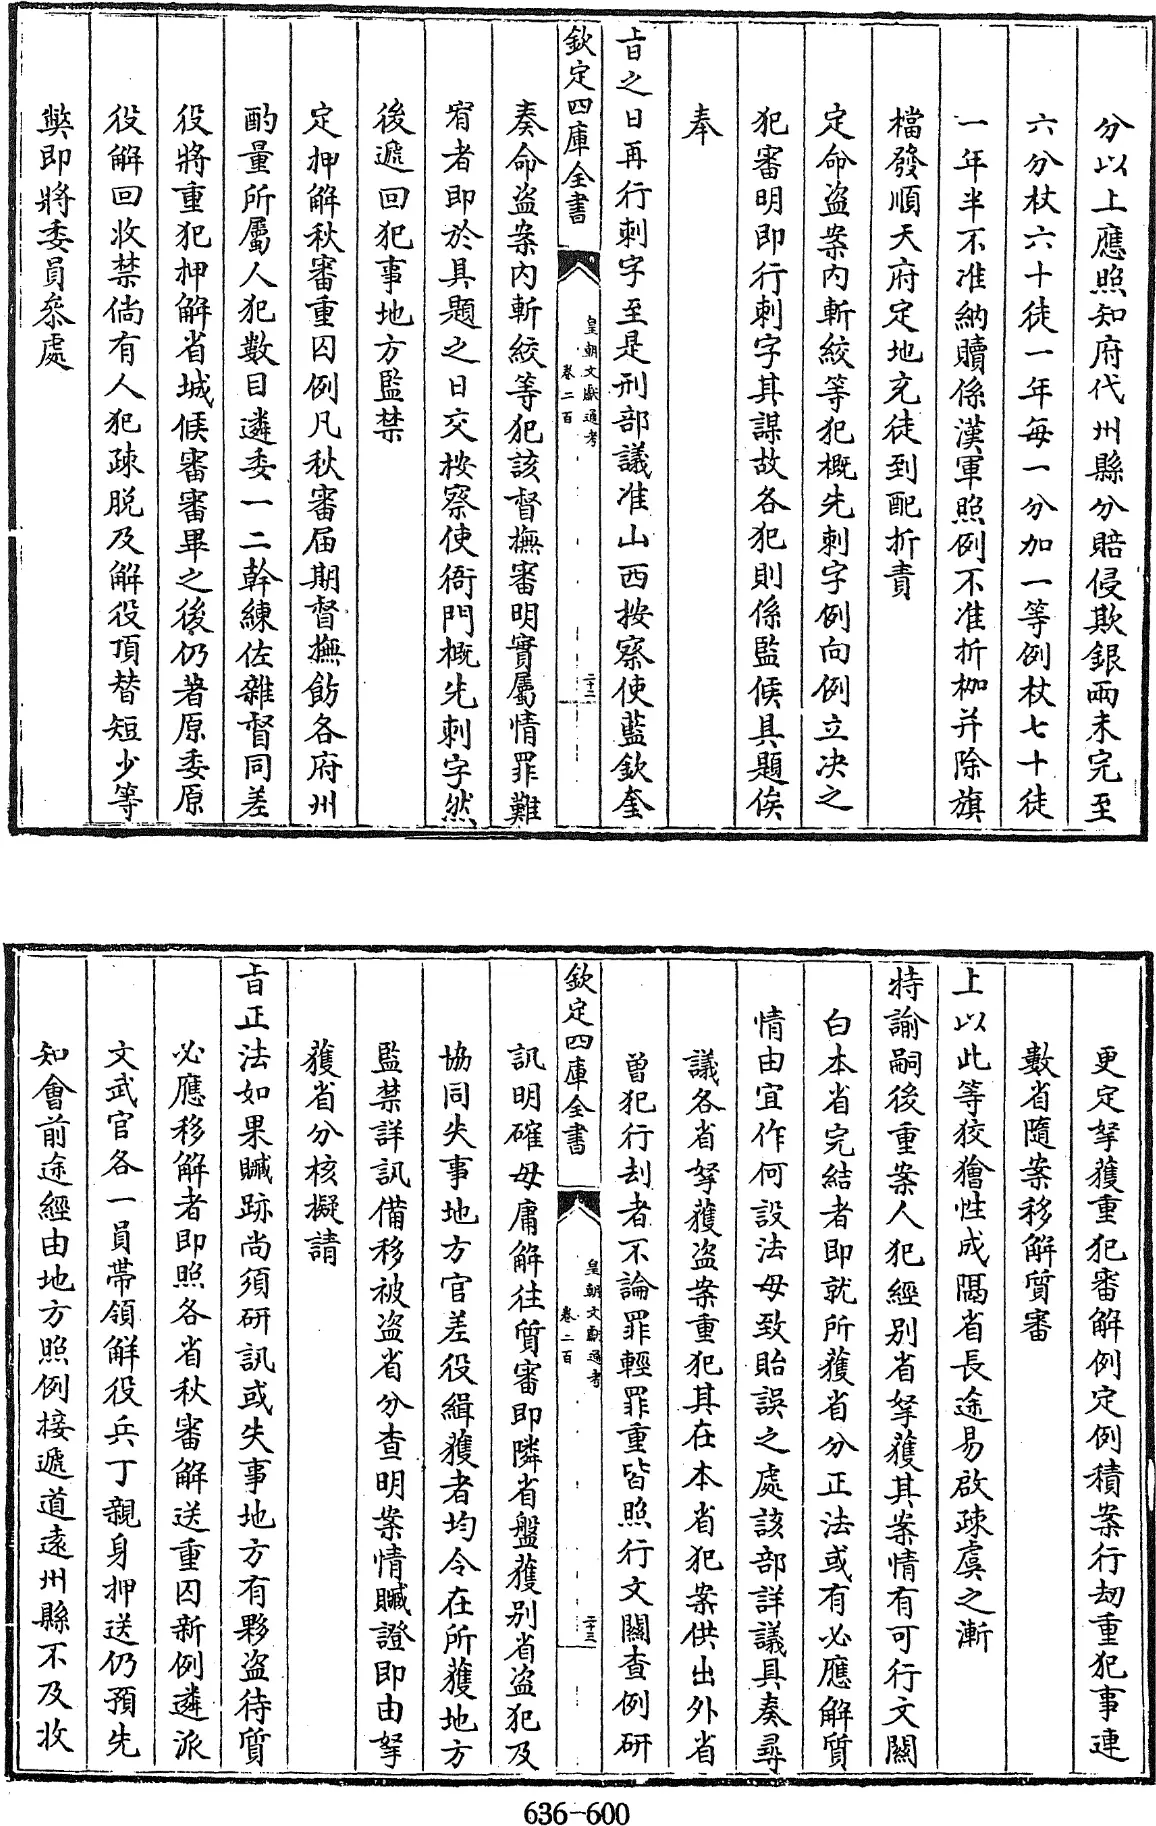 分以上應照知府代州縣分賠侵欺銀兩未完至
六分杖六十徒一年每一分加一等例杖七十徒
一年半不准納贖係漢軍照例不准折枷并除旗
檔發順天府定地充徒到配折責
定命盗案内斬絞等犯概先刺字例向例立决之
犯審明即行刺字其謀故各犯則係監候具題俟
奉
旨之日再行刺字至是刑部議准山西按察使藍欽奎
欽定四庫全書
皇朝文獻通考
卷二百
二十二
奏命盗案内斬絞等犯該督撫審明實屬情罪難
宥者即於具題之日交按察使衙門概先刺字然
後遞回犯事地方監禁
定押解秋審重囚例凡秋審届期督撫飭各府州
酌量所屬人犯數目遴委一二幹練佐雜督同差
役將重犯押解省城候審審畢之後仍著原委原
役解回收禁倘有人犯疎脱及解役頂替短少等
獘即將委員叅處
更定拏獲重犯審解例定例積案行刼重犯事連
數省隨案移解質審
上以此等狡獪性成隔省長途易啟疎虞之漸
特諭嗣後重案人犯經别省拏獲其案情有可行文關
白本省完結者即就所獲省分正法或有必應解質
情由宜作何設法毋致貽誤之處該部詳議具奏尋
議各省拏獲盗案重犯其在本省犯案供出外省
曽犯行刦者不論罪輕罪重皆照行文關查例研
欽定四庫全書
皇朝文獻通考
卷二百
二十三
訊明確毋庸解往質審即隣省盤獲别省盗犯及
協同失事地方官差役緝獲者均令在所獲地方
監禁詳訊備移被盗省分查明案情贓證即由拏
獲省分核擬請
旨正法如果贓跡尚須研訊或失事地方有夥盗待質
必應移解者即照各省秋審解送重囚新例遴派
文武官各一員帶領解役兵丁親身押送仍預先
知會前途經由地方照例接遞道遠州縣不及收
636-600